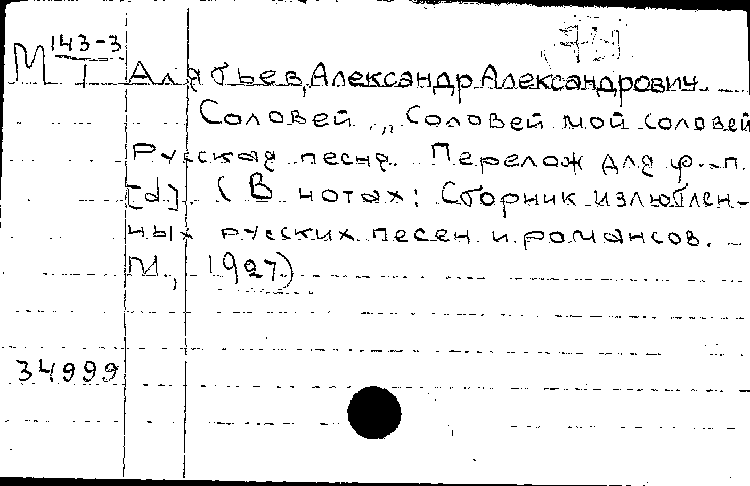 М 143-3
1
Алябьев, Александр Александрович.
Соловей „Соловей мой соловей
Русская песня. Перелож для ф.-п.
[d] (В нотах: Сборник излюблен-
ных русских песен и романсов. –
М., 1927)
34999